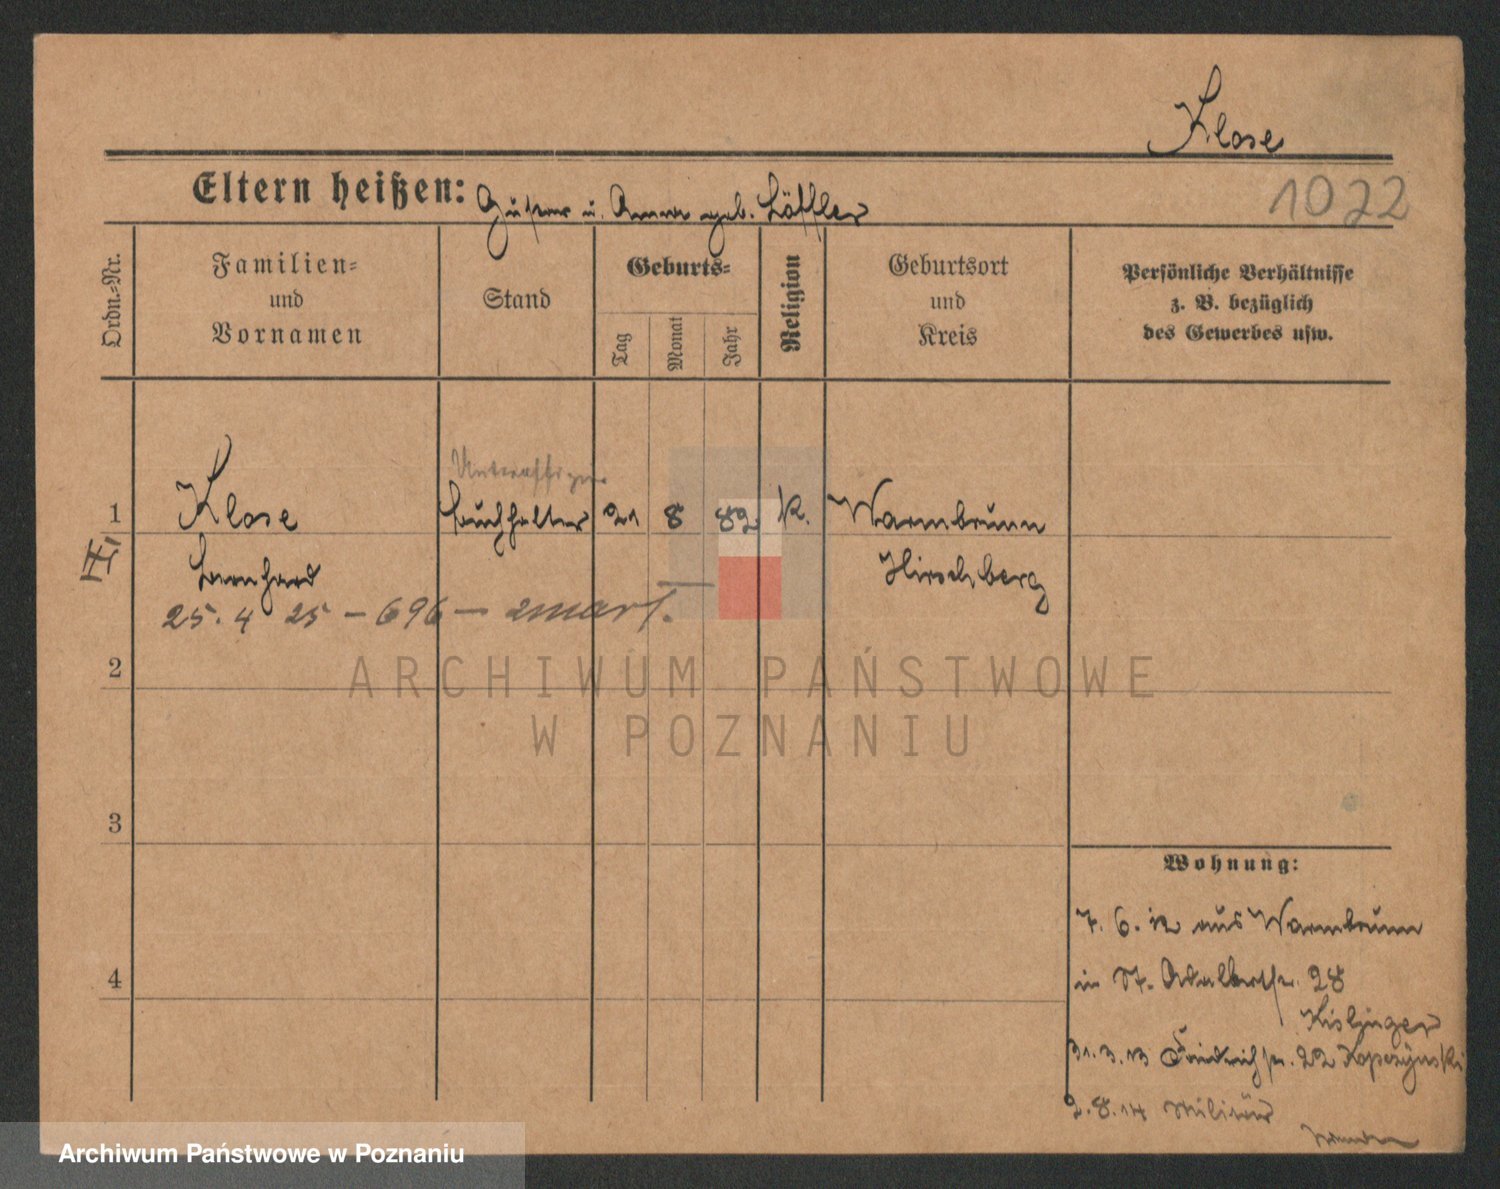 Klose
Eltern heißen: Gustav u. Anna geb. Löffler
1022
Ordn.=Nr.
Familien=
und
Vornamen
Stand
Geburts=
Tag
Monat
Jahr
Religion
Geburtsort
und
Kreis
Persönliche Verhältnisse
z. B. bezüglich
des Gewerbes usw.
1
Klose
Buchhalter
21
8
82
K.
Warmbrunn
Bernhard
Hirschberg
25. 4 25 – 696 – zmarł.
2
ARCHIWUM PAŃSTWOWE
W POZNANIU
3
4
Wohnung:
7. 6. 12 aus Warmbrunn
in St. Adalbertstr. 28
31.3.13 Friedrichstr. 22 Kopczynski
2.8.14 Militär
Archiwum Państwowe w Poznaniu